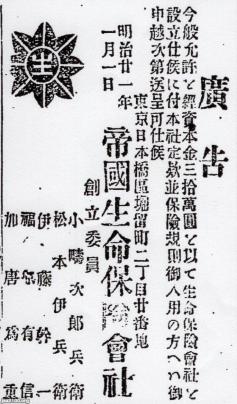 廣告
今般允許を經資本金三拾萬圓を以て生命保險會社を
設立仕候に付本社定欵並保險規則御入用の方へハ御
申越次第送呈可仕候
東京日本橋區堀留町二丁目廿番地
明治廿一年
一月一日
帝國生命保險會社
創立委員
小疇次郎兵衛
松本伊兵衛
伊藤幹一
福原有信
加唐爲重